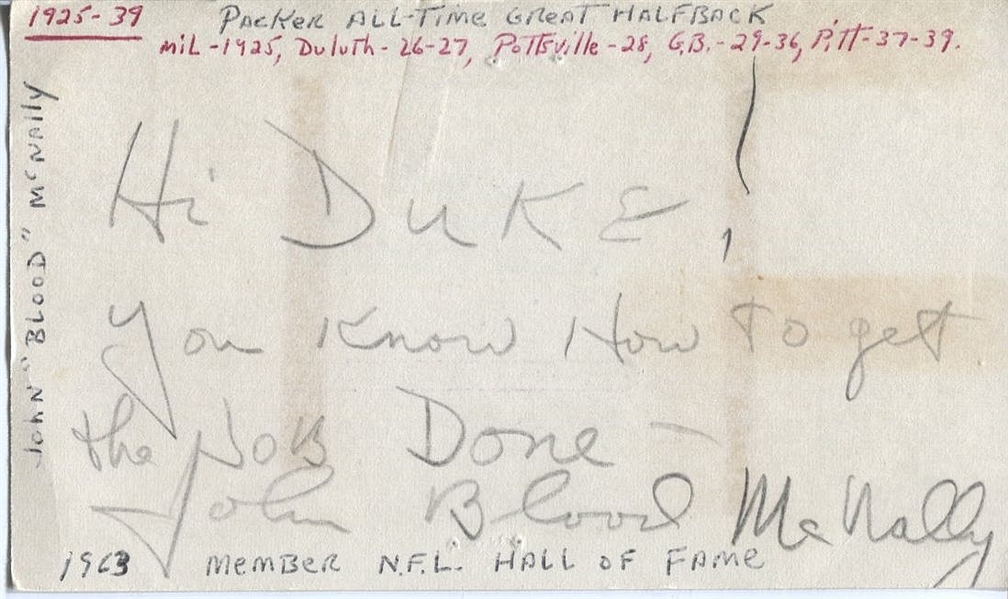 1925-39 PACKER ALL-TIME GREAT HALFBACK
MIL-1925, Duluth-26-27, Pottsville-28, G.B.-29-36, Pitt-37-39.
JOHN "BLOOD" McNAlly
Hi DUKE,
You Know How To get
the JOB Done -
John Blood McNally
1963 MEMBER N.F.L. HALL OF FAME